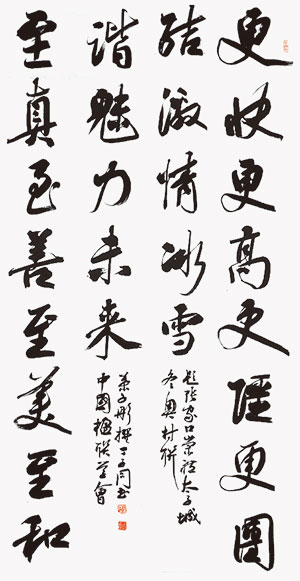 更快更高更强更團
结激情冰雪
题张家口崇礼太子城
冬奥村联
至真至善至美至和
谐魅力未来
葉子彤撰 书
中國楹联学會